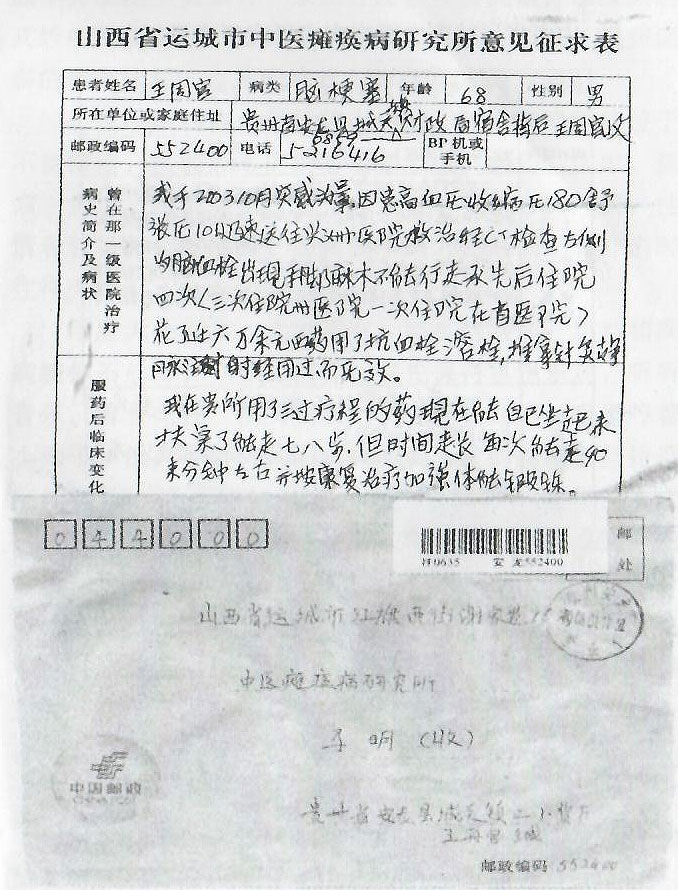 山西省运城市中医瘫痪病研究所意见征求表
患者姓名 王周官 病类 脑梗塞 年龄 68 性别 男
所在单位或家庭住址 贵州省安龙县城关镇财政局宿舍背后王周官收
邮政编码 552400 电话 5216416 BP机或手机
曾在那一级医院治疗
病史简介及病状
我于2003 10月突感头晕,因患高血压收缩压180舒
张压10 速送往兴 州医院救治经CT检查右侧
脑血栓出现手脚麻木不能行走承先后住院
四次(三次住院州医院一次住院在省医院)
花了近六万余元西药用了抗血栓溶栓,推拿针灸静
脉注射 时经用过而无效。
服药后临床变化
我在贵所用了三过疗程的药现在能自己坐起来
扶 了能走七八步,但时间走长每次能走40
来分钟左右并按康复治疗加强体能锻炼。
044000
邮
处
安龙552400
山西省运城市红旗西街谢家巷15
中医瘫痪病研究所
明(收)
中国邮政
贵州省安龙县城关镇二小背后
王周官 缄
邮政编码 552400